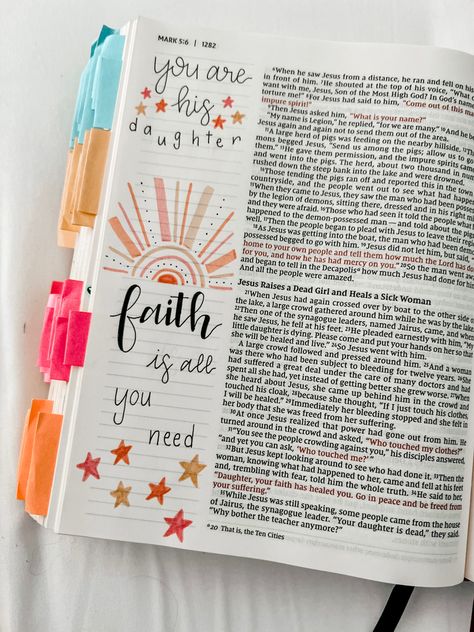 MARK 5:6 | 1282
you are
his
daughter
faith
is all
you
need
⁶When he saw Jesus from a distance, he ran and fell on his
in front of him. ⁷He shouted at the top of his voice, "What
want with me, Jesus, Son of the Most High God? In God's name
torture me!" ⁸For Jesus had said to him, "Come out of this ma
impure spirit!"
⁹Then Jesus asked him, "What is your name?"
"My name is Legion," he replied, "for we are many." ¹⁰And he
Jesus again and again not to send them out of the area.
¹¹A large herd of pigs was feeding on the nearby hillside.
mons begged Jesus, "Send us among the pigs; allow us to go
them." ¹³He gave them permission, and the impure spirits came
and went into the pigs. The herd, about two thousand in number
rushed down the steep bank into the lake and were drowned.
¹⁴Those tending the pigs ran off and reported this in the town
countryside, and the people went out to see what had happened
¹⁵When they came to Jesus, they saw the man who had been possessed
by the legion of demons, sitting there, dressed and in his right
and they were afraid. ¹⁶Those who had seen it told the people what
happened to the demon-possessed man — and told about the pigs
well. ¹⁷Then the people began to plead with Jesus to leave their
¹⁸As Jesus was getting into the boat, the man who had been
possessed begged to go with him. ¹⁹Jesus did not let him, but said,
home to your own people and tell them how much the Lord has
for you, and how he has had mercy on you." ²⁰So the man went
and began to tell in the Decapolis how much Jesus had done for
And all the people were amazed.
Jesus Raises a Dead Girl and Heals a Sick Woman
²¹When Jesus had again crossed over by boat to the other side
the lake, a large crowd gathered around him while he was by the lake
²²Then one of the synagogue leaders, named Jairus, came, and when
he saw Jesus, he fell at his feet. ²³He pleaded earnestly with him, "My
little daughter is dying. Please come and put your hands on her so that
she will be healed and live." ²⁴So Jesus went with him.
A large crowd followed and pressed around him. ²⁵And a woman
was there who had been subject to bleeding for twelve years.
had suffered a great deal under the care of many doctors and had
spent all she had, yet instead of getting better she grew worse.
she heard about Jesus, she came up behind him in the crowd and
touched his cloak, ²⁸because she thought, "If I just touch his clothes,
I will be healed." ²⁹Immediately her bleeding stopped and she felt in
her body that she was freed from her suffering.
³⁰At once Jesus realized that power had gone out from him. He
turned around in the crowd and asked, "Who touched my clothes?"
³¹"You see the people crowding against you," his disciples answered,
"and yet you can ask, 'Who touched me?' "
³²But Jesus kept looking around to see who had done it. ³³Then the
woman, knowing what had happened to her, came and fell at his feet
and, trembling with fear, told him the whole truth. ³⁴He said to her,
"Daughter, your faith has healed you. Go in peace and be freed from
your suffering."
³⁵While Jesus was still speaking, some people came from the house
of Jairus, the synagogue leader. "Your daughter is dead," they said.
"Why bother the teacher anymore?"
ᵃ 20 That is, the Ten Cities